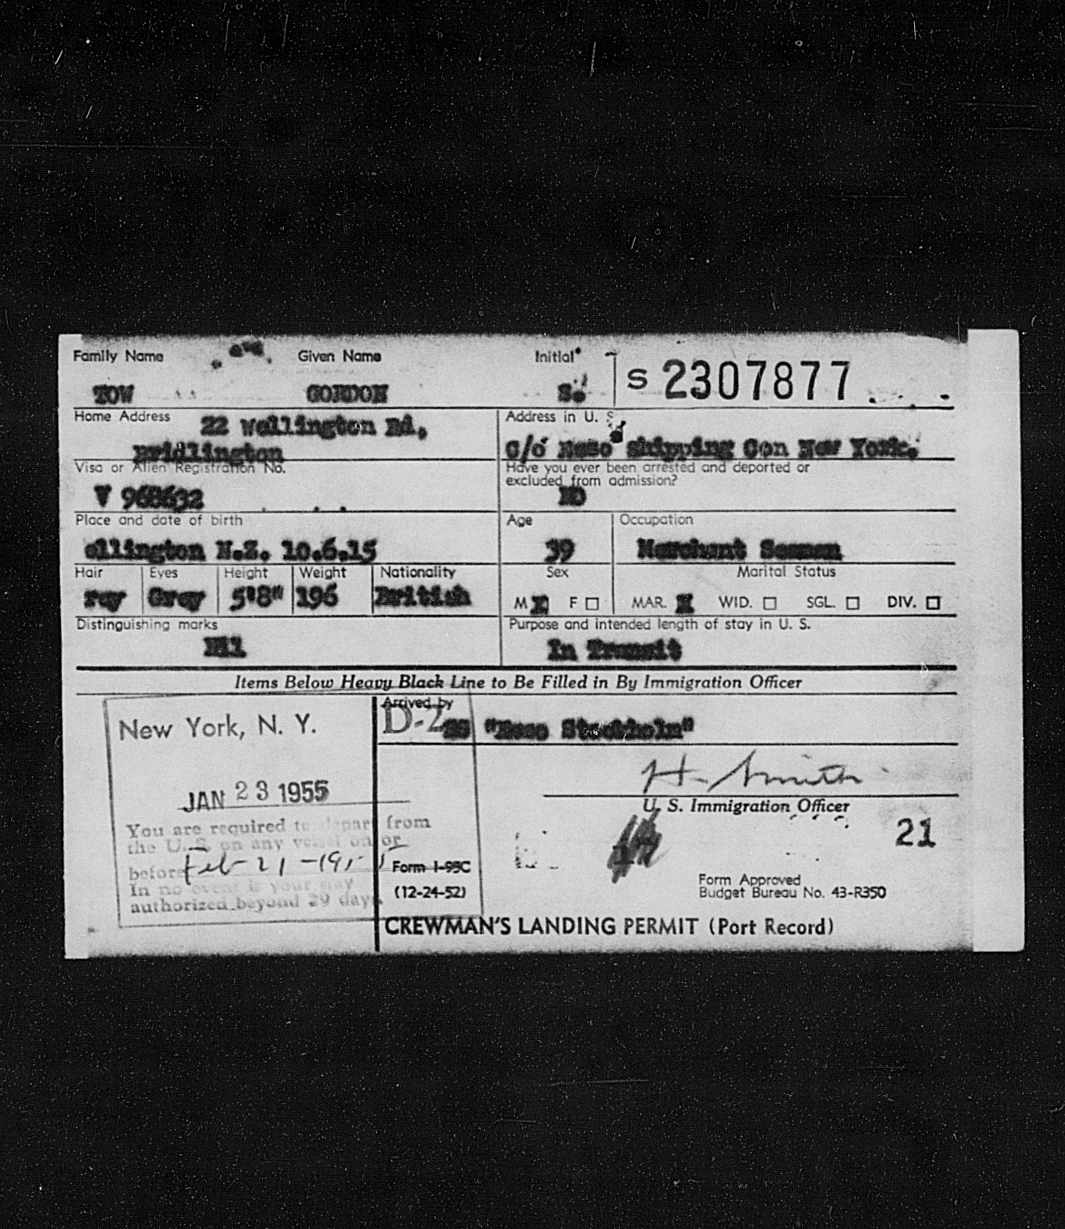 Family Name Given Name Initial
TOW GORDON S. S 2307877
Home Address 22 Wellington Rd,
Bridlington
Address in U. S.
C/o Esso Shipping Con New York.
Visa or Alien Registration No.
V 968632
Have you ever been arrested and deported or
excluded from admission?
NO
Place and date of birth
ellington N.Z. 10.6.15
Age
39
Occupation
Merchant Seaman
Hair Eyes Height Weight Nationality
rey Grey 5'8" 196 British
Sex
M X F ☐
Marital Status
MAR. X WID. ☐ SGL. ☐ DIV. ☐
Distinguishing marks
Nil
Purpose and intended length of stay in U. S.
In Transit
Items Below Heavy Black Line to Be Filled in By Immigration Officer
New York, N. Y.
JAN 23 1955
You are required to depart from
the U. S. on any vessel on or
before Feb 21-195
In no event is your stay
authorized beyond 29 days.
Arrived by
D-2 SS "Esso Stockholm"
H. Smith
U. S. Immigration Officer
21
Form I-95C
(12-24-52)
Form Approved
Budget Bureau No. 43-R350
CREWMAN'S LANDING PERMIT (Port Record)